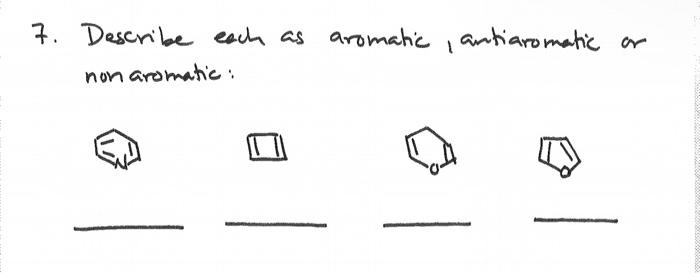 7. Describe each as aromatic, antiaromatic or
nonaromatic:
N O O